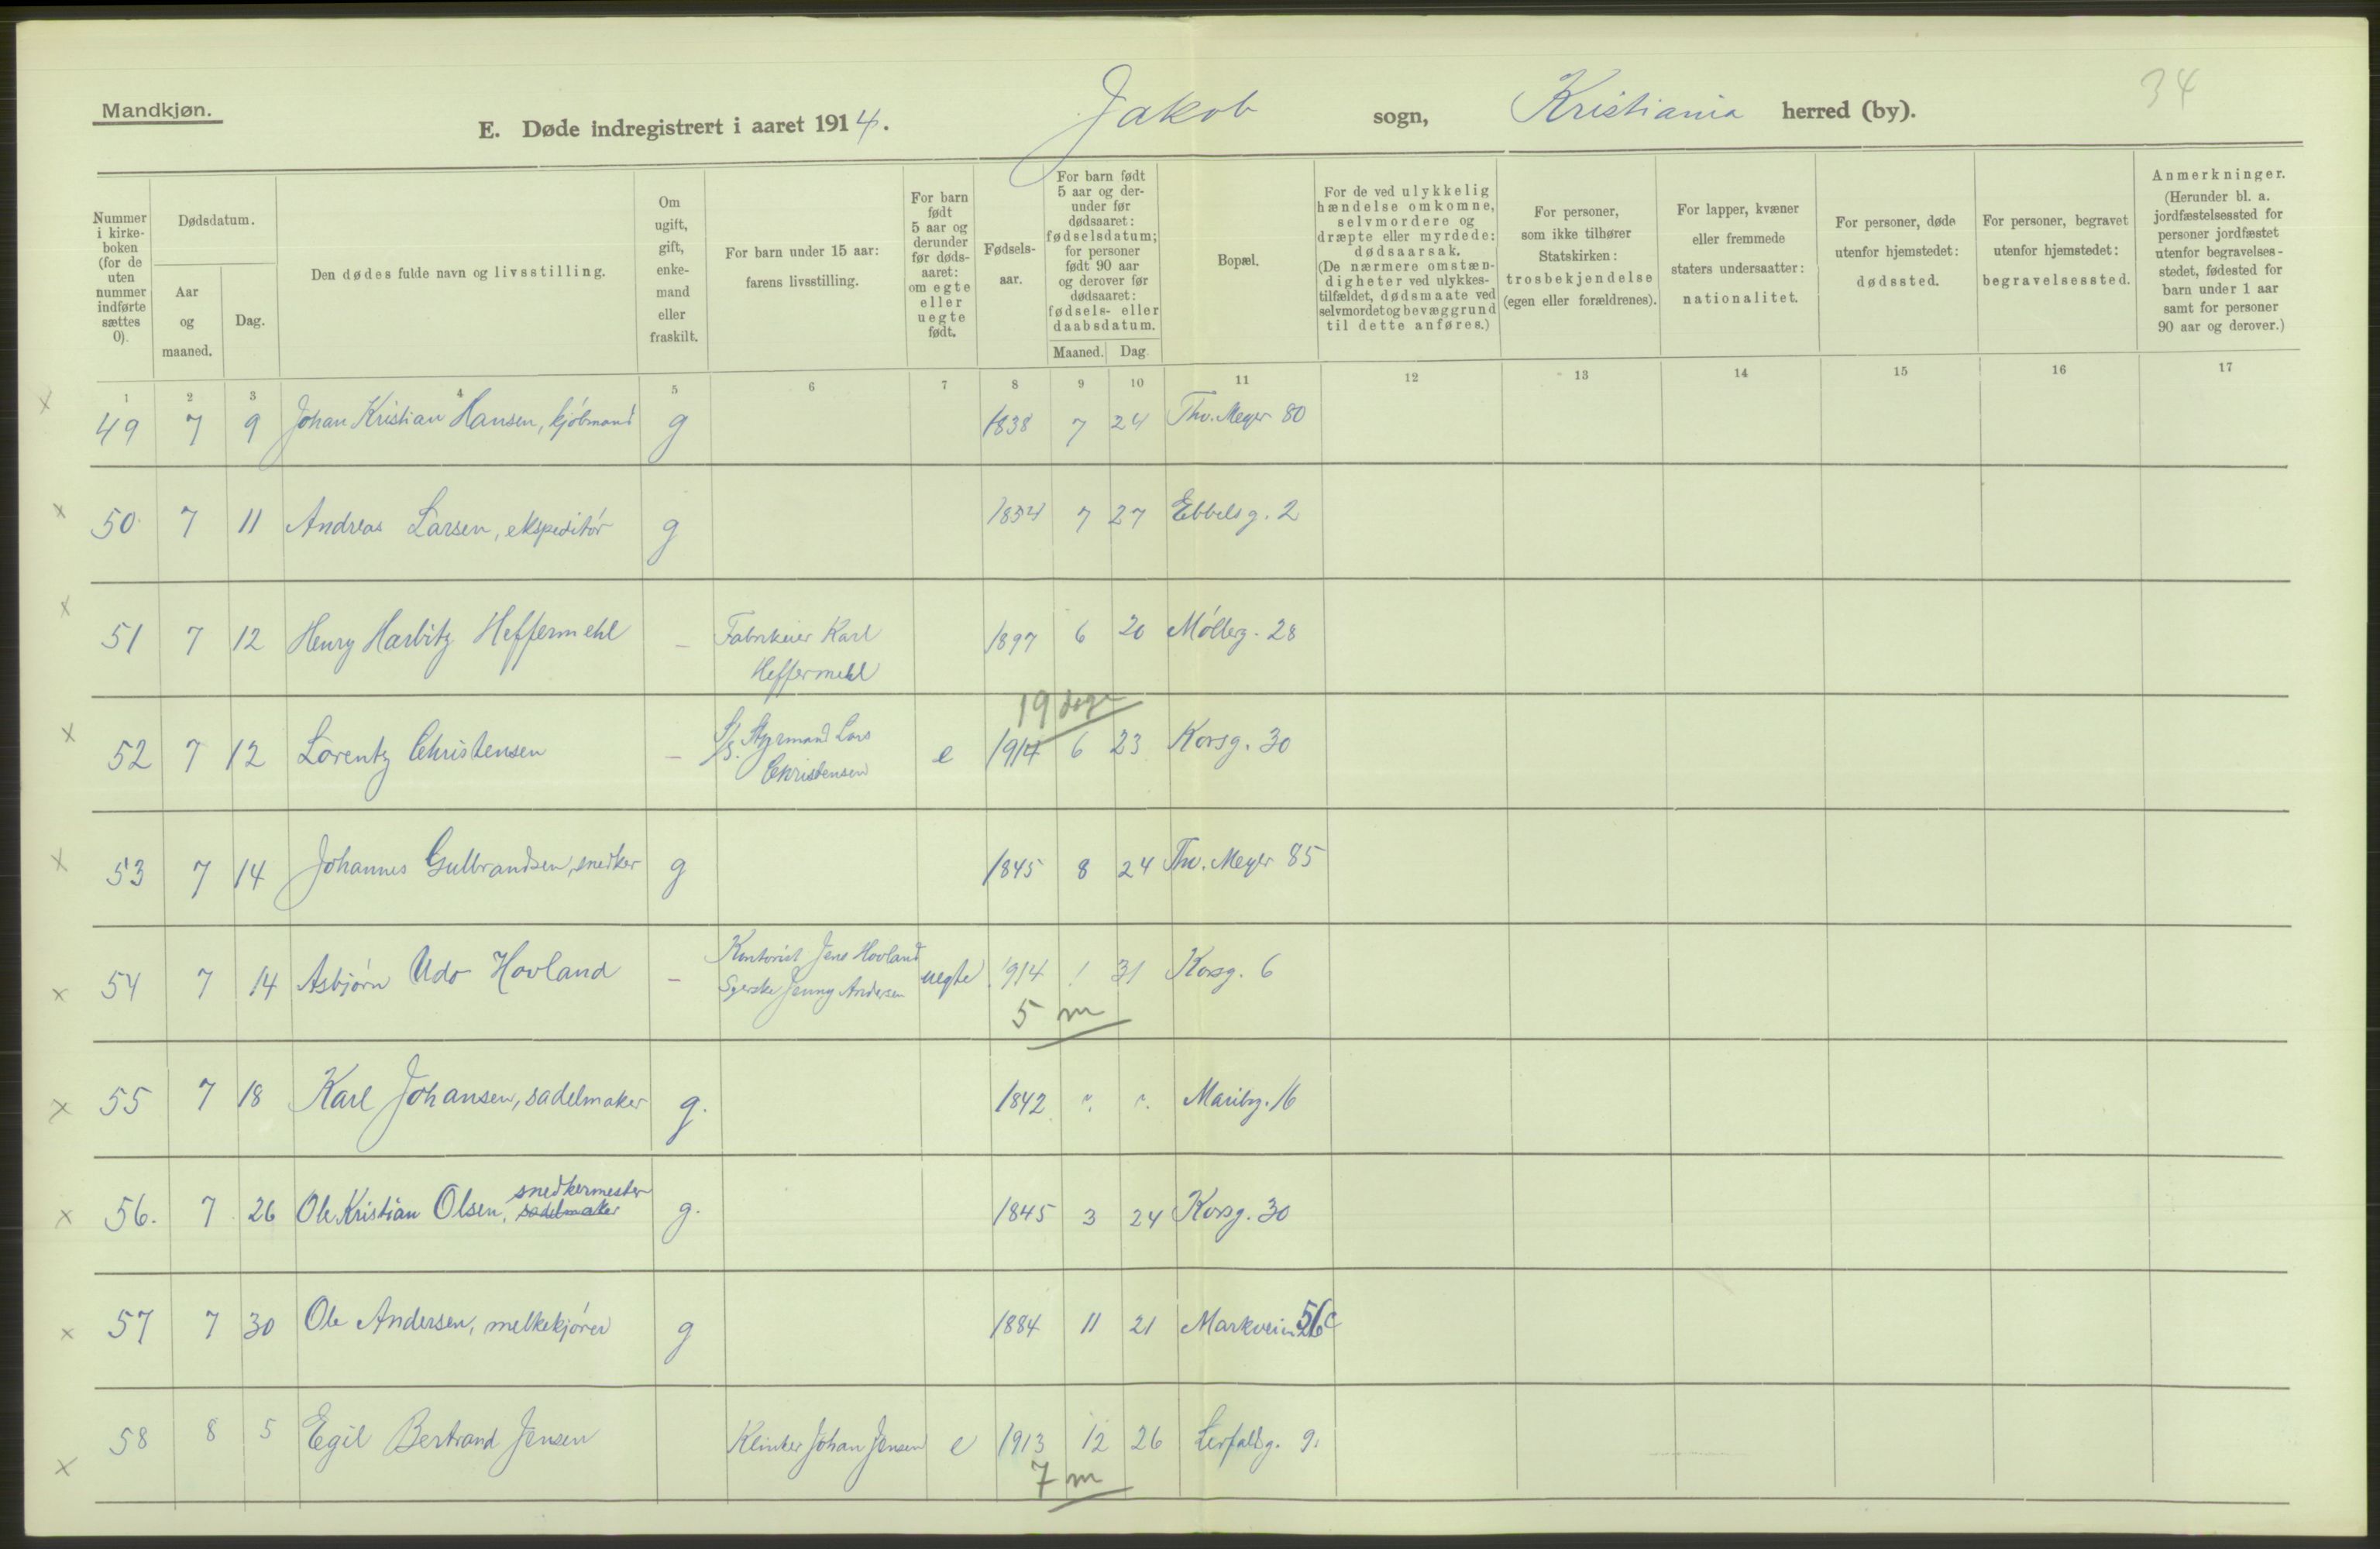 Mandkjøn.
34
E. Døde indregistrert i aaret 1914. Jakob sogn, Kristiania herred (by).
Nummer i kirke- boken (for de uten nummer indførte sættes 0).
Dødsdatum.
Aar og maaned.
Dag.
Den dødes fulde navn og livsstilling.
Om ugift, gift, enke- mand eller fraskilt.
For barn under 15 aar: farens livsstilling.
For barn født 5 aar og derunder før døds- aaret: om egte eller uegte født.
Fødsels- aar.
For barn født 5 aar og der- under før dødsaaret: fødselsdatum; for personer født 90 aar og derover før dødsaaret: fødsels- eller daabsdatum.
Maaned. Dag.
Bopæl.
For de ved ulykkelig hændelse omkomne, selvmordere og dræpte eller myrdede: dødsaarsak. (De nærmere omstæn- digheter ved ulykkes- tilfældet, dødsmaate ved selvmordet og bevæggrund til dette anføres.)
For personer, som ikke tilhører Statskirken: trosbekjendelse (egen eller forældrenes).
For lapper, kvæner eller fremmede staters undersaatter: nationalitet.
For personer, døde utenfor hjemstedet: dødssted.
For personer, begravet utenfor hjemstedet: begravelsessted.
Anmerkninger. (Herunder bl. a. jordfæstelsessted for personer jordfæstet utenfor begravelses- stedet, fødested for barn under 1 aar samt for personer 90 aar og derover.)
1 2 3 4 5 6 7 8 9 10 11 12 13 14 15 16 17
x 49 7 9 Johan Kristian Hansen, kjøbmand g 1838 7 24 Thv. Meyer 80
x 50 7 11 Andreas Larsen, ekspeditør g 1834 7 27 Ebbels g. 2
x 51 7 12 Henry Harbitz Heffermehl – Fabrikeier Karl Heffermehl 1897 6 20 Møllerg. 28
19 dage
x 52 7 12 Lorentz Christensen – S/S. Styrmand Lars Christensen e 1914 6 23 Korsg. 30
x 53 7 14 Johannes Gulbrandsen, snedker g 1845 8 24 Thv. Meyer 85
x 54 7 14 Asbjørn Udo Hovland – Kontorist Jens Hovland Syerske Jenny Andersen uegte 1914 1 31 Korsg. 6
5 m
x 55 7 18 Karl Johansen, sadelmaker g. 1842 ". ". Maribg. 16
x 56. 7 26 Ole Kristian Olsen, snedkermester sadelmaker g. 1845 3 24 Korsg. 30
x 57 7 30 Ole Andersen, melkekjører g 1884 11 21 Markvein 56c
x 58 8 5 Egil Bertrand Jensen Klinker Johan Jensen e 1913 12 26 Lerfaldsg. 9.
7 m